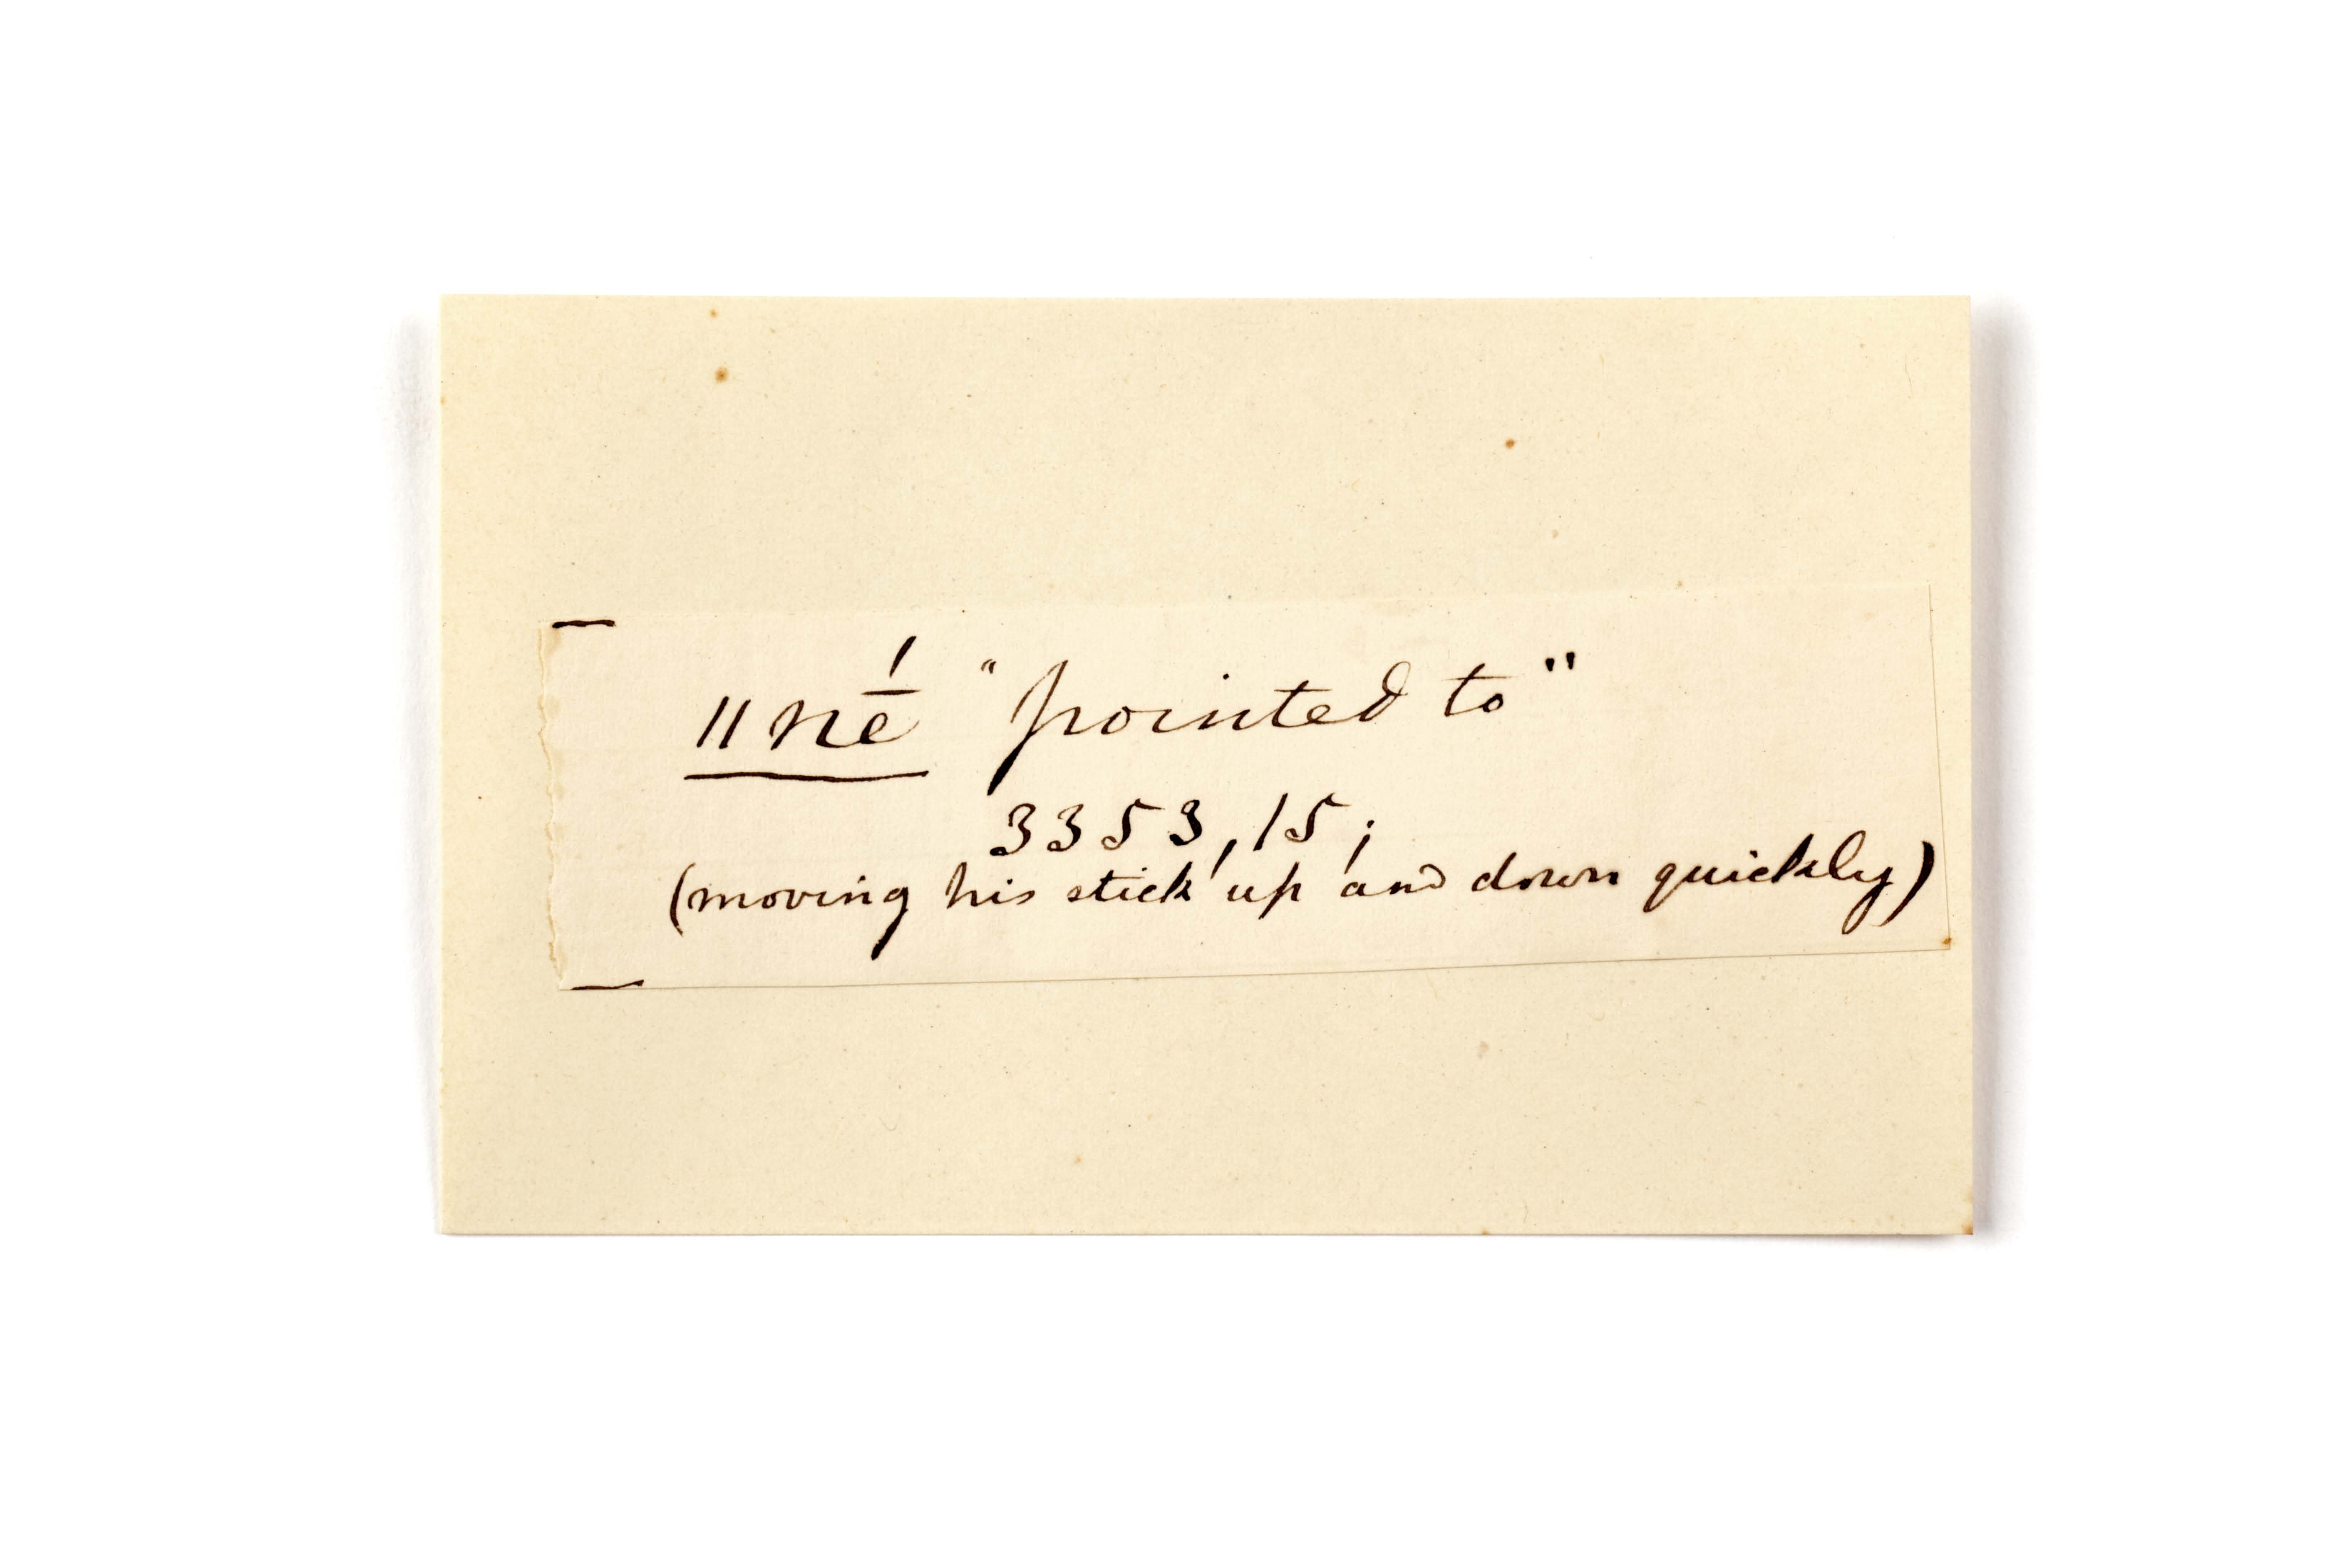 ǁnḗ "pointed to"
3353,15;
(moving his stick up and down quickly)